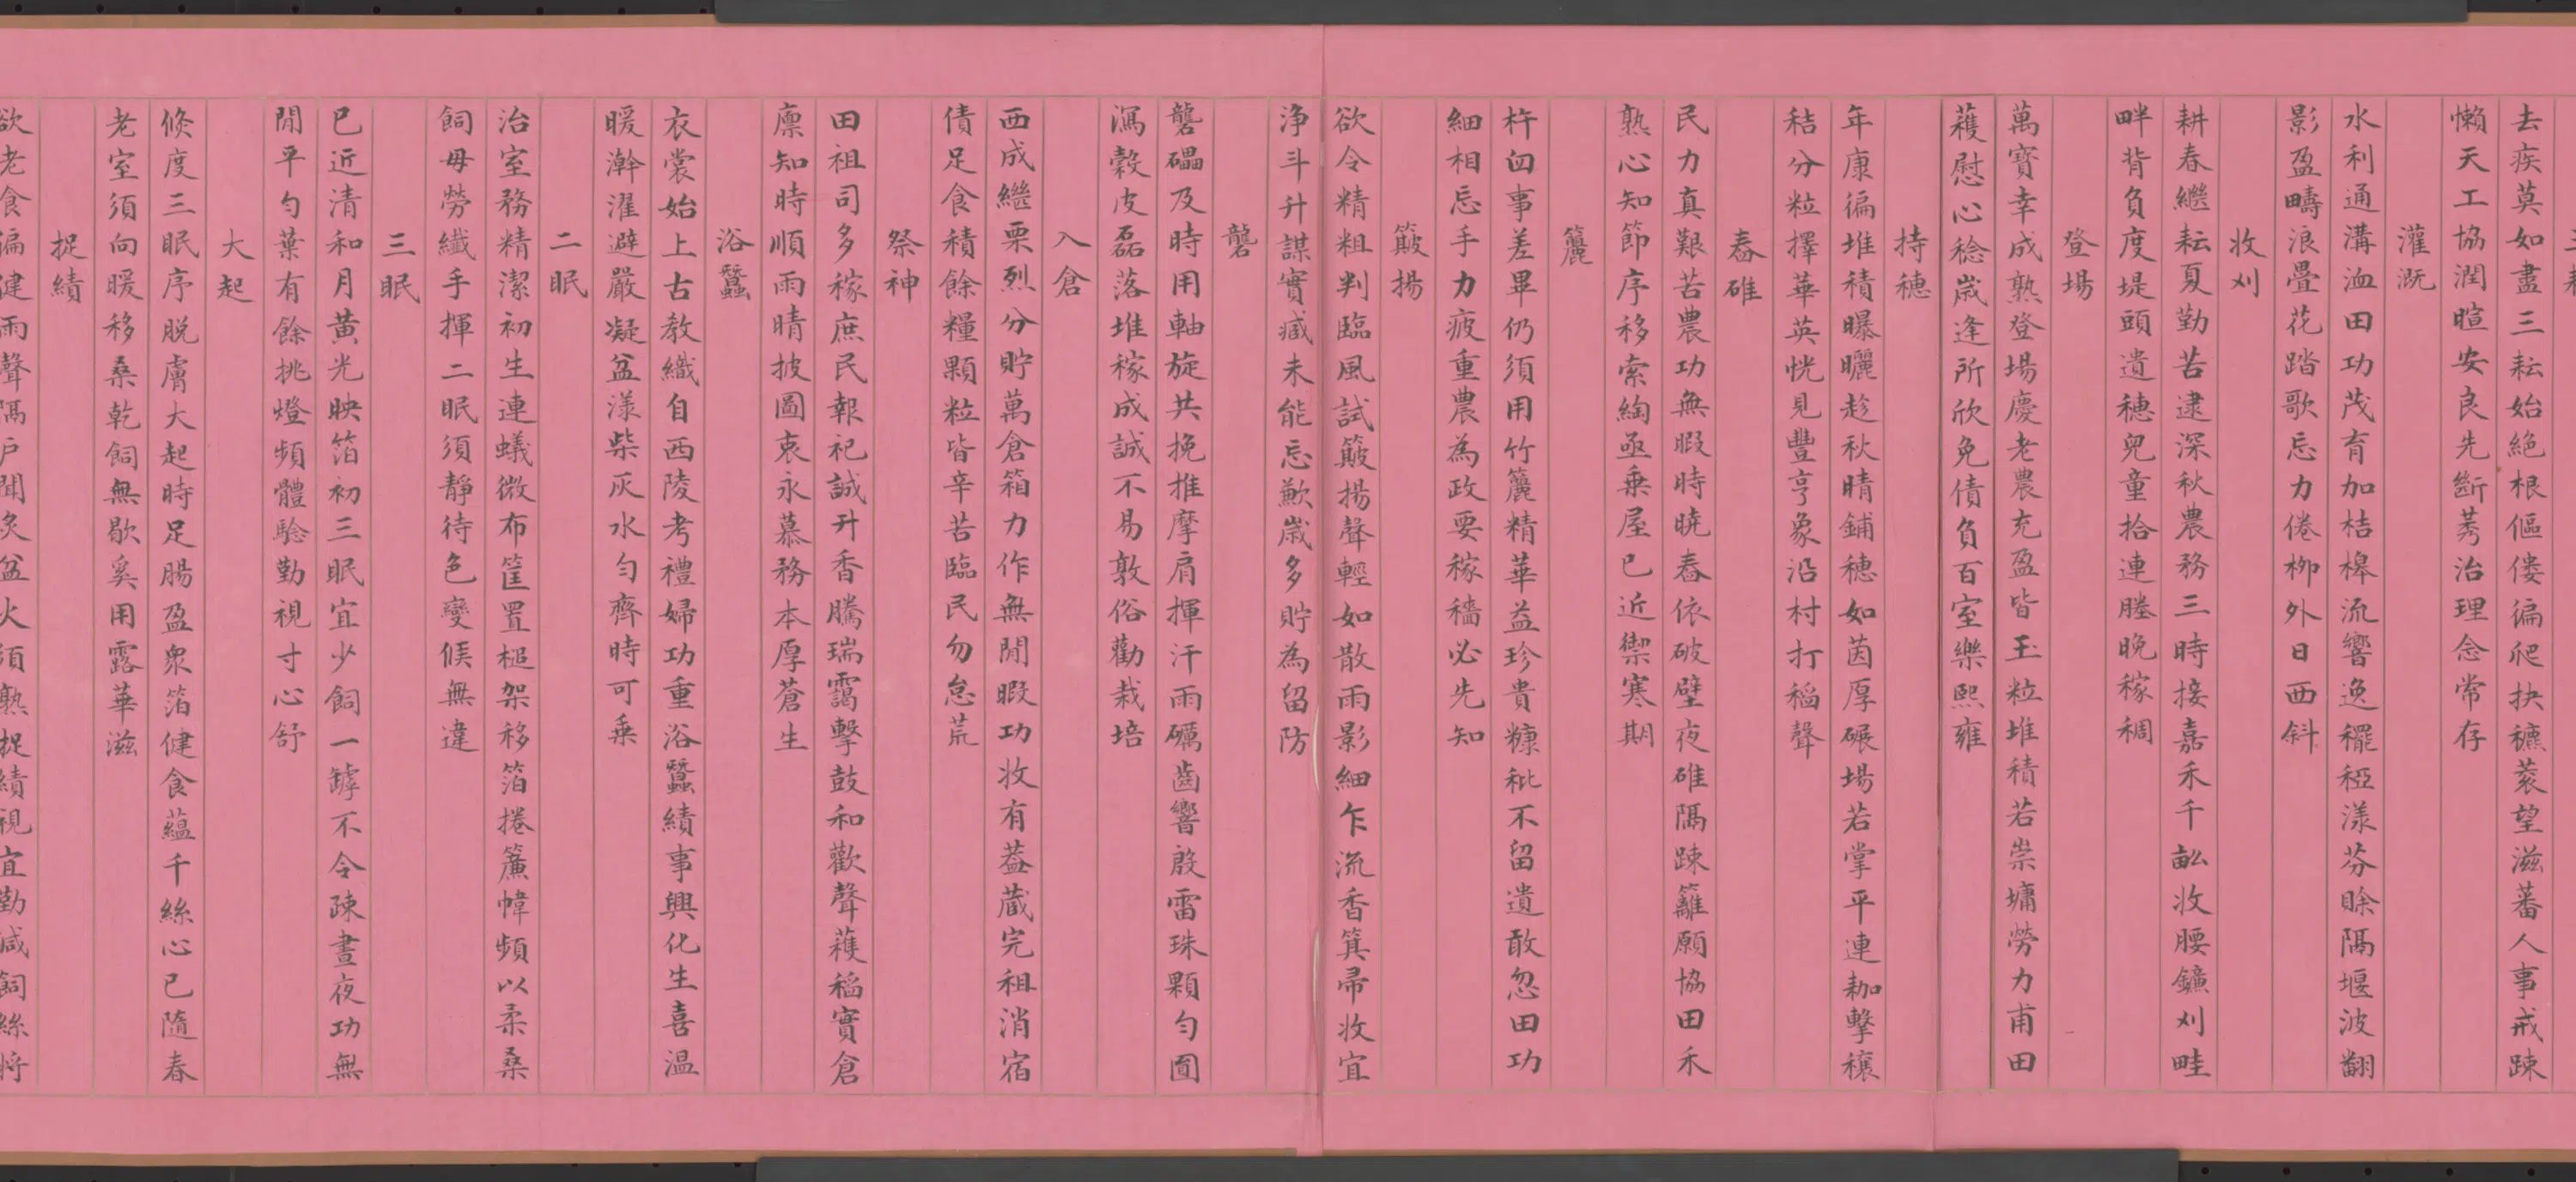 去疾莫如盡三耘始絕根傴僂徧爬抉穮蔉望滋蕃人事戒疎
懶天工協潤暄安良先斷莠治理念常存
灌溉
水利通溝洫田功茂育加桔槔流響逸䆉稏漾芬賒隔堰波翻
影盈疇浪疊花踏歌忘力倦柳外日西斜
收刈
耕春繼耘夏勤苦逮深秋農務三時接嘉禾千畝收腰鐮刈畦
畔背負度堤頭遺穗兒童拾連塍晚稼稠
登場
萬寶幸成熟登場慶老農充盈皆玉粒堆積若崇墉勞力甫田
穫慰心稔歲逢所欣免債負百室樂熙雍
持穗
年康徧堆積曝曬趁秋晴鋪穗如茵厚碾場若掌平連耞擊穰
秸分粒擇華英恍見豐亨象沿村打稻聲
舂碓
民力真艱苦農功無暇時曉舂依破壁夜碓隔疎籬願協田禾
熟心知節序移索綯亟乘屋已近禦寒期
簏
杵臼事差畢仍須用竹簏精華益珍貴糠秕不留遺敢忽田功
細相忘手力疲重農為政要稼穡必先知
簸揚
欲令精粗判臨風試簸揚聲輕如散雨影細乍流香箕帚收宜
淨斗升謀實臧未能忘歉歲多貯為留防
礱
礱礧及時用軸旋共挽推摩肩揮汗雨礪齒響殷雷珠顆勻圓
瀉穀皮磊落堆稼成誠不易敦俗勸栽培
入倉
西成繼栗烈分貯萬倉箱力作無閒暇功收有蓋藏完租消宿
債足食積餘糧顆粒皆辛苦臨民勿怠荒
祭神
田祖司多稼庶民報祀誠升香騰瑞靄擊鼓和歡聲穫稻實倉
廩知時順雨晴披圖衷永慕務本厚蒼生
浴蠶
衣裳始上古教織自西陵考禮婦功重浴蠶績事興化生喜溫
暖澣濯避嚴凝盆漾柴灰水勻齊時可乘
二眠
治室務精潔初生連蟻微布筐置槌架移箔捲簾幃頻以柔桑
飼毋勞纖手揮二眠須靜待色變候無違
三眠
已近清和月黃光映箔初三眠宜少飼一罅不令疎晝夜功無
閒平勻葉有餘挑燈頻體驗勤視寸心舒
大起
倐度三眠序脫膚大起時足腸盈眾箔健食蘊千絲心已隨春
老室須向暖移桑乾飼無歇奚用露華滋
捉績
欲老食徧健雨聲隔戶聞炙盆火須熟捉績視宜勤減飼絲將